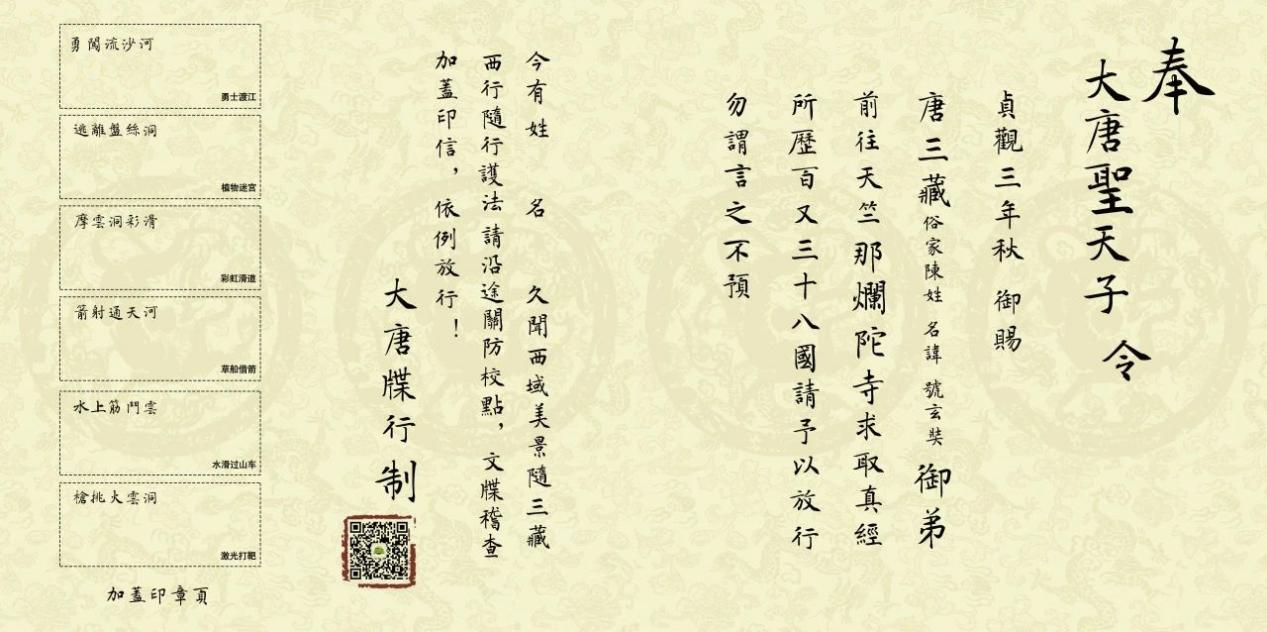 奉
大唐聖天子 令
貞觀三年秋 御賜
唐三藏俗家陳姓 名諱 號玄奘 御弟
前往天竺那爛陀寺求取真經
所歷百又三十八國請予以放行
勿謂言之不預
今有姓 名 久聞西域美景隨三藏
西行隨行護法請沿途關防校點，文牒稽查
加蓋印信，依例放行！
大唐牒行制
勇闖流沙河
勇士渡江
逃離盤絲洞
植物迷宮
摩雲洞彩滑
彩虹滑道
箭射通天河
草船借箭
水上筋鬥雲
水滑过山车
槍挑火雲洞
激光打靶
加蓋印章頁